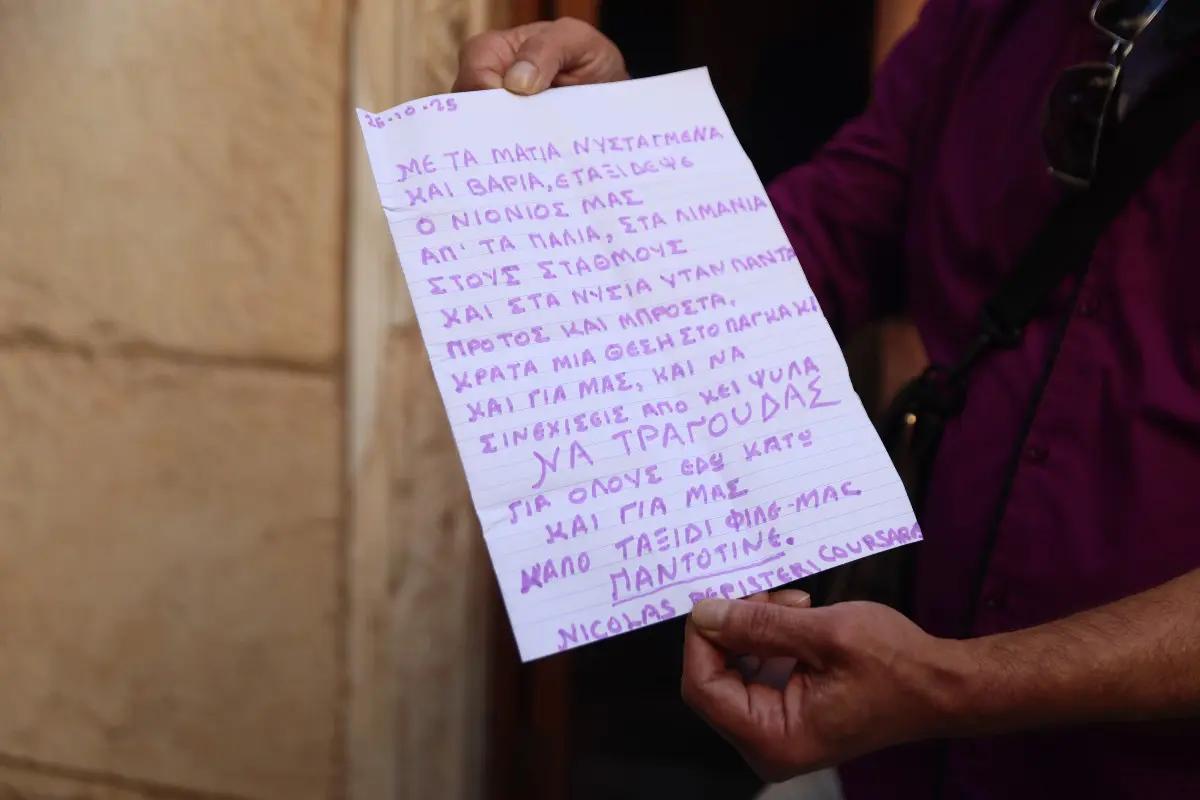 25.10.25
ΜΕ ΤΑ ΜΑΤΙΑ ΝΥΣΤΑΓΜΕΝΑ
ΚΑΙ ΒΑΡΙΑ, ΕΤΑΞΙΔΕΨΕ
Ο ΝΙΟΝΙΟΣ ΜΑΣ
ΑΠ' ΤΑ ΠΑΛΙΑ, ΣΤΑ ΛΙΜΑΝΙΑ
ΣΤΟΥΣ ΣΤΑΘΜΟΥΣ
ΚΑΙ ΣΤΑ ΝΥΣΙΑ ΥΤΑΝ ΠΑΝΤΑ
ΠΡΟΤΟΣ ΚΑΙ ΜΠΡΟΣΤΑ.
ΚΡΑΤΑ ΜΙΑ ΘΕΣΗ ΣΤΟ ΠΑΓΚΑΚΙ
ΚΑΙ ΓΙΑ ΜΑΣ, ΚΑΙ ΝΑ
ΣΙΝΕΧΙΣΕΙΣ ΑΠΟ ΚΕΙ ΨΥΛΑ
ΝΑ ΤΡΑΓΟΥΔΑΣ
ΓΙΑ ΟΛΟΥΣ ΕΔΩ ΚΑΤΩ
ΚΑΙ ΓΙΑ ΜΑΣ
ΚΑΛΟ ΤΑΞΙΔΙ ΦΙΛΕ-ΜΑΣ
ΠΑΝΤΟΤΙΝΕ.
NICOLAS PERISTERI